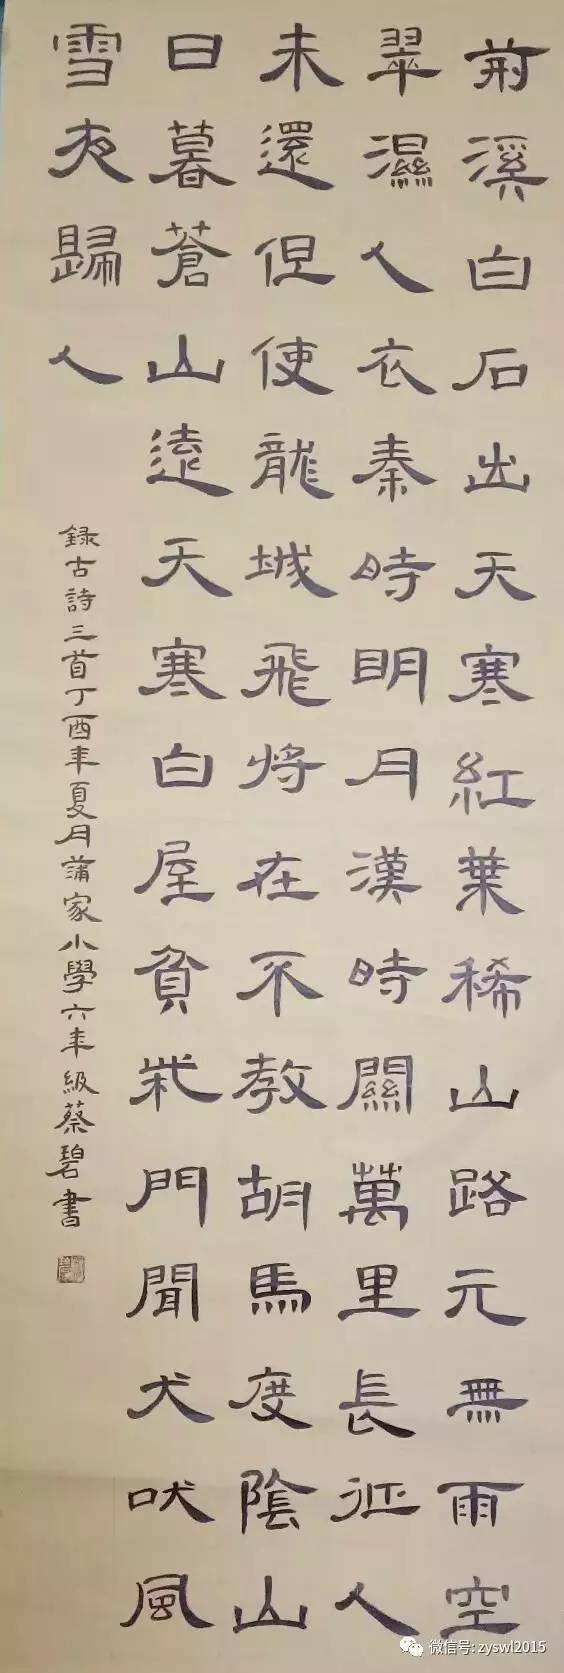 荊溪白石出天寒紅葉稀山路元無雨空
翠濕人衣秦時明月漢時關萬里長征人
未還但使龍城飛將在不教胡馬度陰山
日暮蒼山遠天寒白屋貧柴門聞犬吠風
雪夜歸人
録古詩三首丁酉年夏月蒲家小學六年級蔡碧書
微信号: zyswl2015